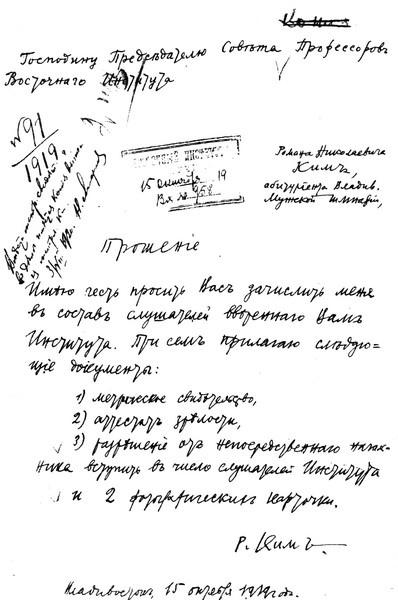 Копия
Господину Председателю Совѣта Профессоровъ
Восточнаго Института
№ 91
1919
ВОСТОЧНЫЙ ИНСТИТУТ
15 октября 19
Вх. № 958
Романа Николаевича
Кимъ,
абитурiента Владив.
Мужской гимназiи,
Прошенiе
Имѣю честь просить Васъ зачислить меня
въ составъ слушателей ввѣреннаго Вамъ
Института. При семъ прилагаю слѣдую=
щiе документы:
1) метрическое свидѣтельство,
2) аттестатъ зрѣлости,
3) разрѣшенiе отъ непосредственнаго началь-
ника вступить въ число слушателей Института
и 2 фотографическiя карточки.
Р. Кимъ
Владивостокъ, 15 октября 1919 года.